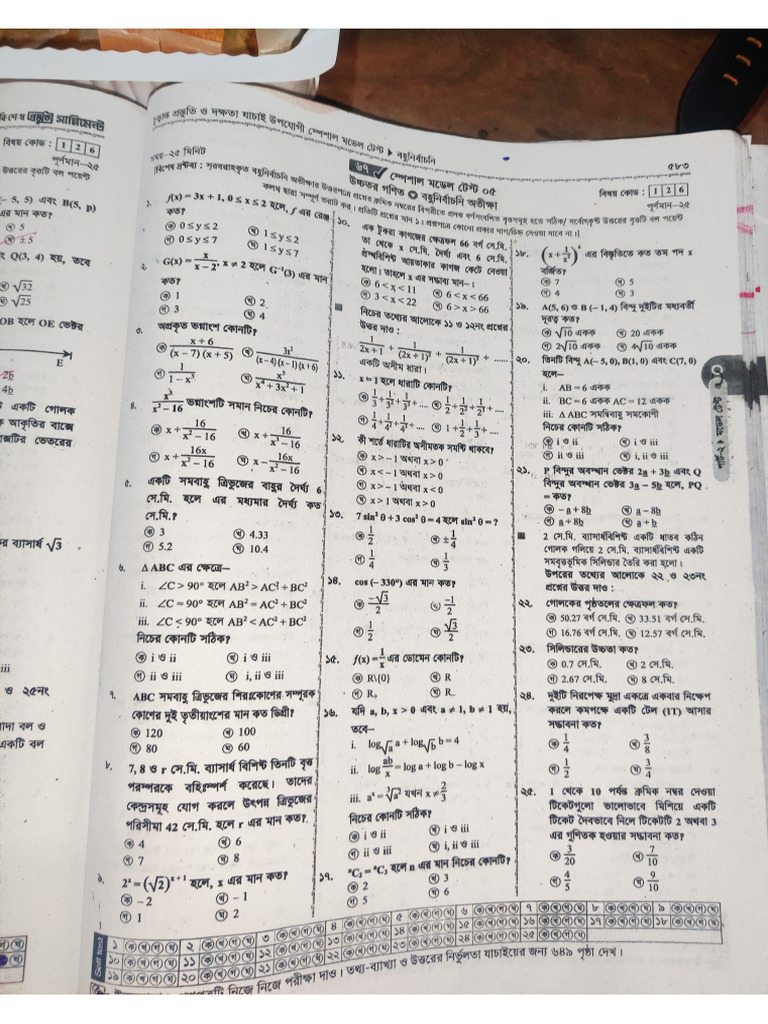 বি শে ষ প্রস্তুতি সাপ্লিমেন্ট
বিষয় কোড : 1 2 6
পূর্ণমান—২৫
উত্তরের বৃত্তটি বল পয়েন্ট
– 5, 5) এবং B(5, p)
এর মান কত?
5
± 5
Q(3, 4) হয়, তবে
√32
√25
OB হলে OE ভেক্টর
E
একটি গোলক
আকৃতির বাক্সে
ভেতরের
র ব্যাসার্ধ √3
iii
ও ২৫নং
একটি বল
প্রস্তুতি ও দক্ষতা যাচাই উপযোগী স্পেশাল মডেল টেস্ট ▶ বহুনির্বাচনি
৫৮৩
সময়—২৫ মিনিট
৬৭ স্পেশাল মডেল টেস্ট ০৫
উচ্চতর গণিত বহুনির্বাচনি অভীক্ষা
বিষয় কোড : 1 2 6
পূর্ণমান—২৫
[বিশেষ দ্রষ্টব্য : সরবরাহকৃত বহুনির্বাচনি অভীক্ষার উত্তরপত্রে প্রশ্নের ক্রমিক নম্বরের বিপরীতে প্রদত্ত বর্ণসংবলিত বৃত্তসমূহ হতে সঠিক/ সর্বোৎকৃষ্ট উত্তরের বৃত্তটি বল পয়েন্ট
কলম দ্বারা সম্পূর্ণ ভরাট কর। প্রতিটি প্রশ্নের মান ১। প্রশ্নপত্রে কোনো প্রকার দাগ/চিহ্ন দেওয়া যাবে না।]
১. f(x) = 3x + 1, 0 ≤ x ≤ 2 হলে, f এর রেঞ্জ
কত?
ক 0 ≤ y ≤ 2 খ 1 ≤ y ≤ 2
গ 0 ≤ y ≤ 7 ঘ 1 ≤ y ≤ 7
২. G(x) = x/(x – 2), x ≠ 2 হলে G⁻¹(3) এর মান
কত?
ক 1 খ 2
গ 3 ঘ 4
৩. অপ্রকৃত ভগ্নাংশ কোনটি?
ক (x + 6)/((x – 7) (x + 5)) খ 3t²/((x – 4) (x – 1) (x + 6))
গ 1/(1 – x³) ঘ x⁵/(x⁴ + 3x² + 1)
৪. x³/(x² – 16) ভগ্নাংশটি সমান নিচের কোনটি?
ক x + 16/(x² – 16) খ x + 16/(x² – 16)
গ x + 16x/(x² – 16) ঘ x – 16x/(x² – 16)
৫. একটি সমবাহু ত্রিভুজের বাহুর দৈর্ঘ্য 6
সে.মি. হলে এর মধ্যমার দৈর্ঘ্য কত
সে.মি.?
ক 3 খ 4.33
গ 5.2 ঘ 10.4
৬. Δ ABC এর ক্ষেত্রে–
i. ∠C > 90° হলে AB² > AC² + BC²
ii. ∠C = 90° হলে AB² = AC² + BC²
iii. ∠C < 90° হলে AB² < AC² + BC²
নিচের কোনটি সঠিক?
ক i ও ii খ i ও iii
গ ii ও iii ঘ i, ii ও iii
৭. ABC সমবাহু ত্রিভুজের শিরঃকোণের সম্পূরক
কোণের দুই তৃতীয়াংশের মান কত ডিগ্রী?
ক 120 খ 100
গ 80 ঘ 60
৮. 7, 8 ও r সে.মি. ব্যাসার্ধ বিশিষ্ট তিনটি বৃত্ত
পরস্পরকে বহিঃস্পর্শ করেছে। তাদের
কেন্দ্রসমূহ যোগ করলে উৎপন্ন ত্রিভুজের
পরিসীমা 42 সে.মি. হলে r এর মান কত?
ক 4 খ 6
গ 7 ঘ 8
৯. 2ˣ = (√2)ˣ⁺¹ হলে, x এর মান কত?
ক – 2 খ – 1
গ 1 ঘ 2
১০. এক টুকরা কাগজের ক্ষেত্রফল 66 বর্গ সে.মি.
তা থেকে x সে.মি. দৈর্ঘ্য এবং 6 সে.মি.
প্রস্থবিশিষ্ট আয়তাকার কাগজ কেটে নেওয়া
হলো। তাহলে x এর সম্ভাব্য মান–।
ক 6 < x < 11 খ 6 < x < 66
গ 3 < x < 22 ঘ 6 > x > 66
নিচের তথ্যের আলোকে ১১ ও ১২নং প্রশ্নের
উত্তর দাও :
1/(2x + 1) + 1/(2x + 1)² + 1/(2x + 1)³ + ......
একটি অসীম ধারা।
১১. x = 1 হলে ধারাটি কোনটি?
ক 1/3 + 1/3² + 1/3³ + .... খ 1/2 + 1/2² + 1/2³ + ....
গ 1/4 + 1/4² + 1/4³ + .... ঘ 1 + 1/2 + 1/3 + ....
১২. কী শর্তে ধারাটির অসীমতক সমষ্টি থাকবে?
ক x > – 1 অথবা x > 0
খ x < – 1 অথবা x > 0
গ x > – 1 অথবা x < 0
ঘ x > 1 অথবা x > 0
১৩. 7 sin² θ + 3 cos² θ = 4 হলে sin² θ = ?
ক 1/2 খ ± 1/4
গ 1/4 ঘ 1/3
১৪. cos (– 330°) এর মান কত?
ক –√3/2 খ –1/2
গ 1/2 ঘ √3/2
১৫. f(x) = 1/x এর ডোমেন কোনটি?
ক R\{0} খ R
গ R₊ ঘ R₋
১৬. যদি a, b, x > 0 এবং a ≠ 1, b ≠ 1 হয়,
তবে–
i. log√a a + log√b b = 4
ii. log ab/x = log a + log b – log x
নিচের কোনটি সঠিক?
ক i ও ii খ i ও iii
গ ii ও iii ঘ i, ii ও iii
১৭. ⁿC₂ = ⁿC₃ হলে n এর মান নিচের কোনটি?
ক 2 খ 3
গ 5 ঘ 6
১৮. এর বিস্তৃতিতে কত তম পদ x
বর্জিত?
ক 7 খ 5
গ 4 ঘ 3
১৯. A(5, 6) ও B (– 1, 4) বিন্দু দুইটির মধ্যবর্তী
দূরত্ব কত?
ক √10 একক খ 20 একক
গ 2√10 একক ঘ 4√10 একক
২০. তিনটি বিন্দু A(– 5, 0), B(1, 0) এবং C(7, 0)
হলে–
i. AB = 6 একক
ii. BC = 6 একক AC = 12 একক
iii. Δ ABC সমদ্বিবাহু সমকোণী
নিচের কোনটি সঠিক?
ক i ও ii খ i ও iii
গ ii ও iii ঘ i, ii ও iii
২১. P বিন্দুর অবস্থান ভেক্টর 2a + 3b এবং Q
বিন্দুর অবস্থান ভেক্টর 3a – 5b হলে, PQ
= কত?
ক – a + 8b খ a – 8b
গ a + 8b ঘ a + b
2 সে.মি. ব্যাসার্ধবিশিষ্ট একটি ধাতব কঠিন
গোলক গলিয়ে 2 সে.মি. ব্যাসার্ধবিশিষ্ট একটি
সমবৃত্তভূমিক সিলিন্ডার তৈরি করা হলো।
উপরের তথ্যের আলোকে ২২ ও ২৩নং
প্রশ্নের উত্তর দাও :
২২. গোলকের পৃষ্ঠতলের ক্ষেত্রফল কত?
ক 50.27 বর্গ সে.মি. খ 33.51 বর্গ সে.মি.
গ 16.76 বর্গ সে.মি. ঘ 12.57 বর্গ সে.মি.
২৩. সিলিন্ডারের উচ্চতা কত?
ক 0.7 সে.মি. খ 2 সে.মি.
গ 2.67 সে.মি. ঘ 8 সে.মি.
২৪. দুইটি নিরপেক্ষ মুদ্রা একত্রে একবার নিক্ষেপ
করলে কমপক্ষে একটি টেল (1T) আসার
সম্ভাবনা কত?
ক 1/4 খ 3/8
গ 1/2 ঘ 3/4
২৫. 1 থেকে 10 পর্যন্ত ক্রমিক নম্বর দেওয়া
টিকেটগুলো ভালোভাবে মিশিয়ে একটি
টিকেট দৈবভাবে নিলে টিকেটটি 2 অথবা 3
এর গুণিতক হওয়ার সম্ভাবনা কত?
ক 3/20 খ 7/10
গ 4/5 ঘ 9/10
নিজে নিজে পরীক্ষা দাও। তথ্য-ব্যাখ্যা ও উত্তরের নির্ভুলতা যাচাইয়ের জন্য ৬৪৯ পৃষ্ঠা দেখ।